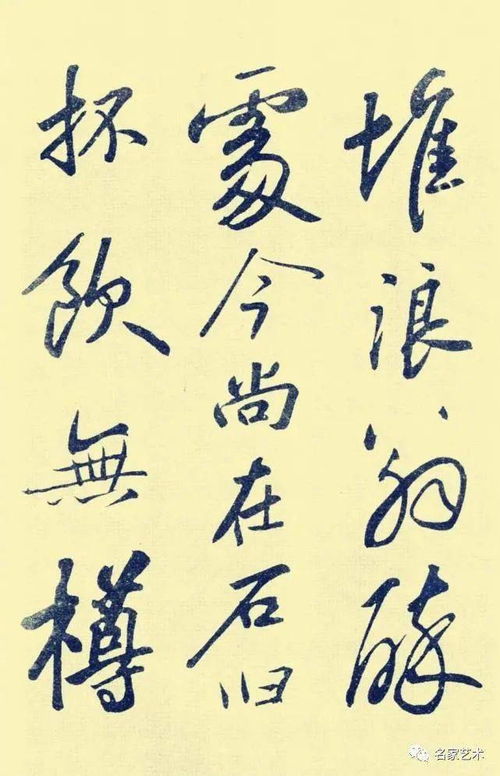 堆浪翁醉
處今尚在石臼
抔飲無樽
名家艺术